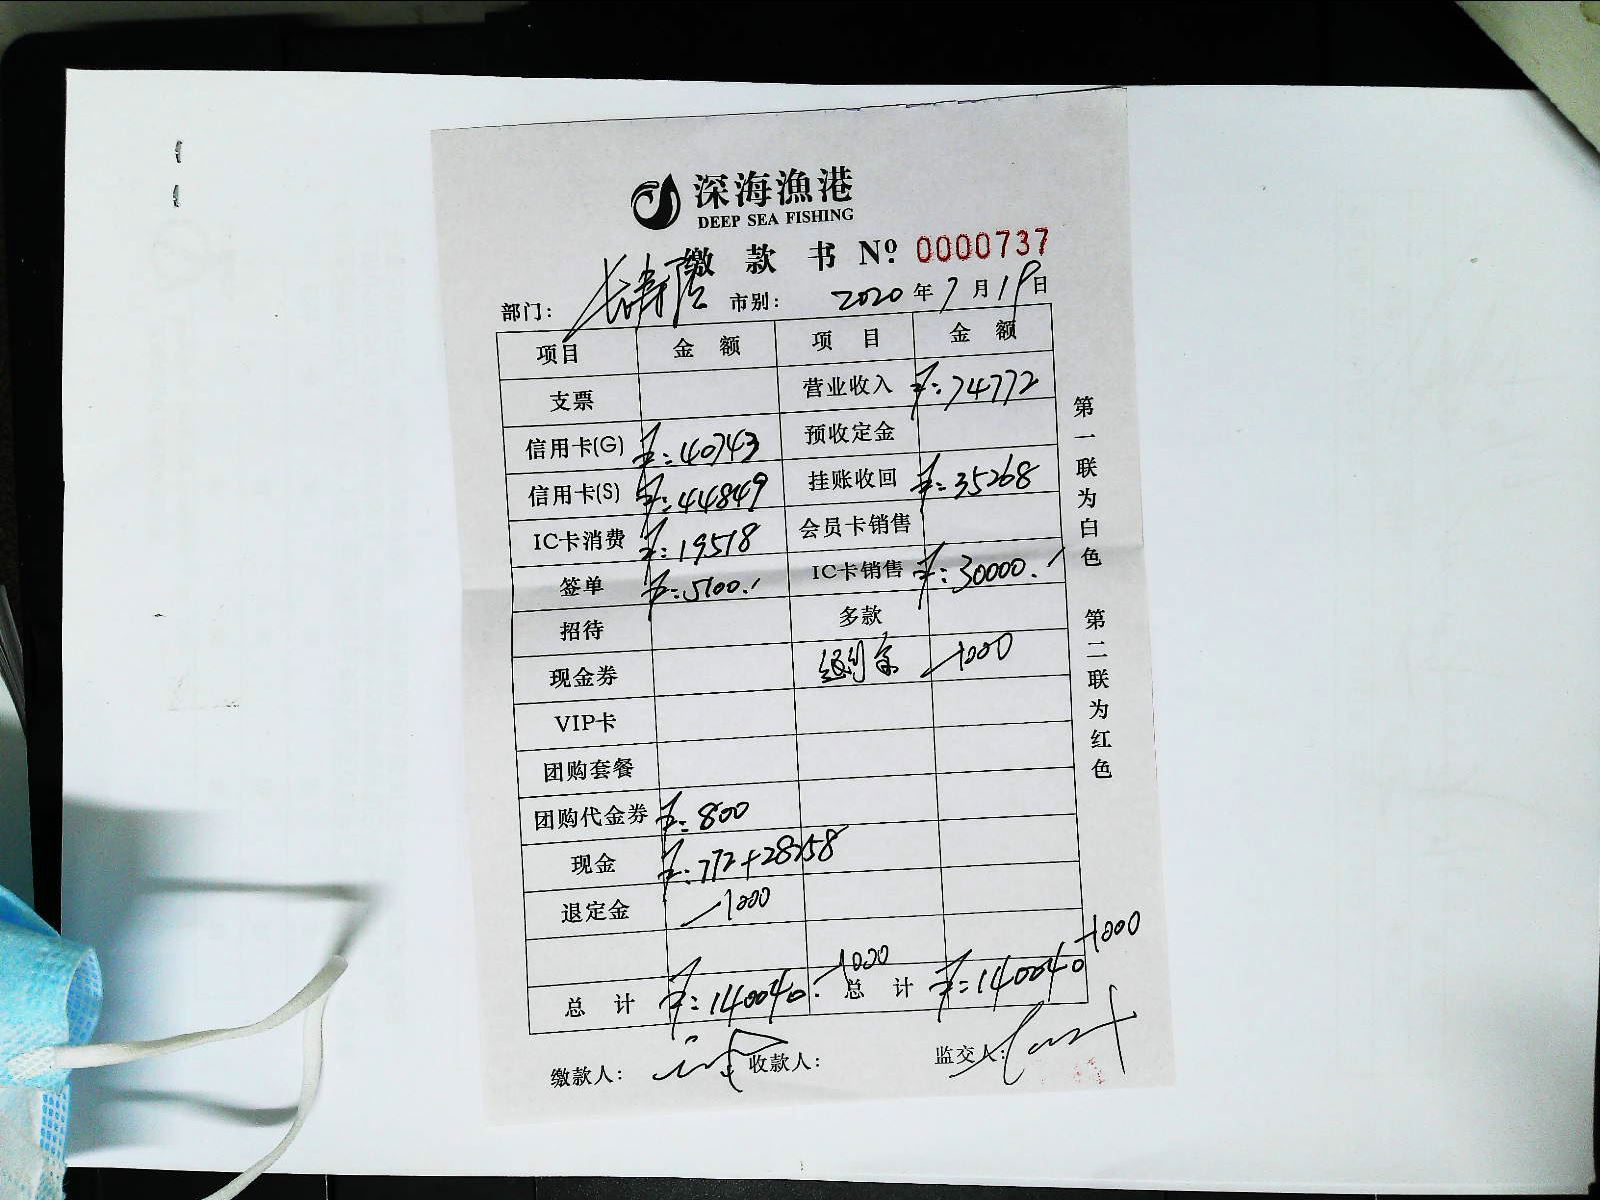 深海漁港
DEEP SEA FISHING
缴款书 Nº 0000737
部门: 市别: 2020年7月19日
项目 金额 项目 金额
支票 营业收入 ¥:74772
信用卡(G) ¥:40743 预收定金
信用卡(S) ¥:44849 挂账收回 ¥:35268
IC卡消费 ¥:19518 会员卡销售
签单 ¥:5100. IC卡销售 ¥:30000.
招待 多款
现金券 -1000
VIP卡
团购套餐
团购代金券 ¥:800
现金 ¥:772+28258
退定金 -1000
总计 ¥:140040.-1000 总计 ¥:140040-1000
缴款人: 收款人: 监交人:
第一联为白色 第二联为红色